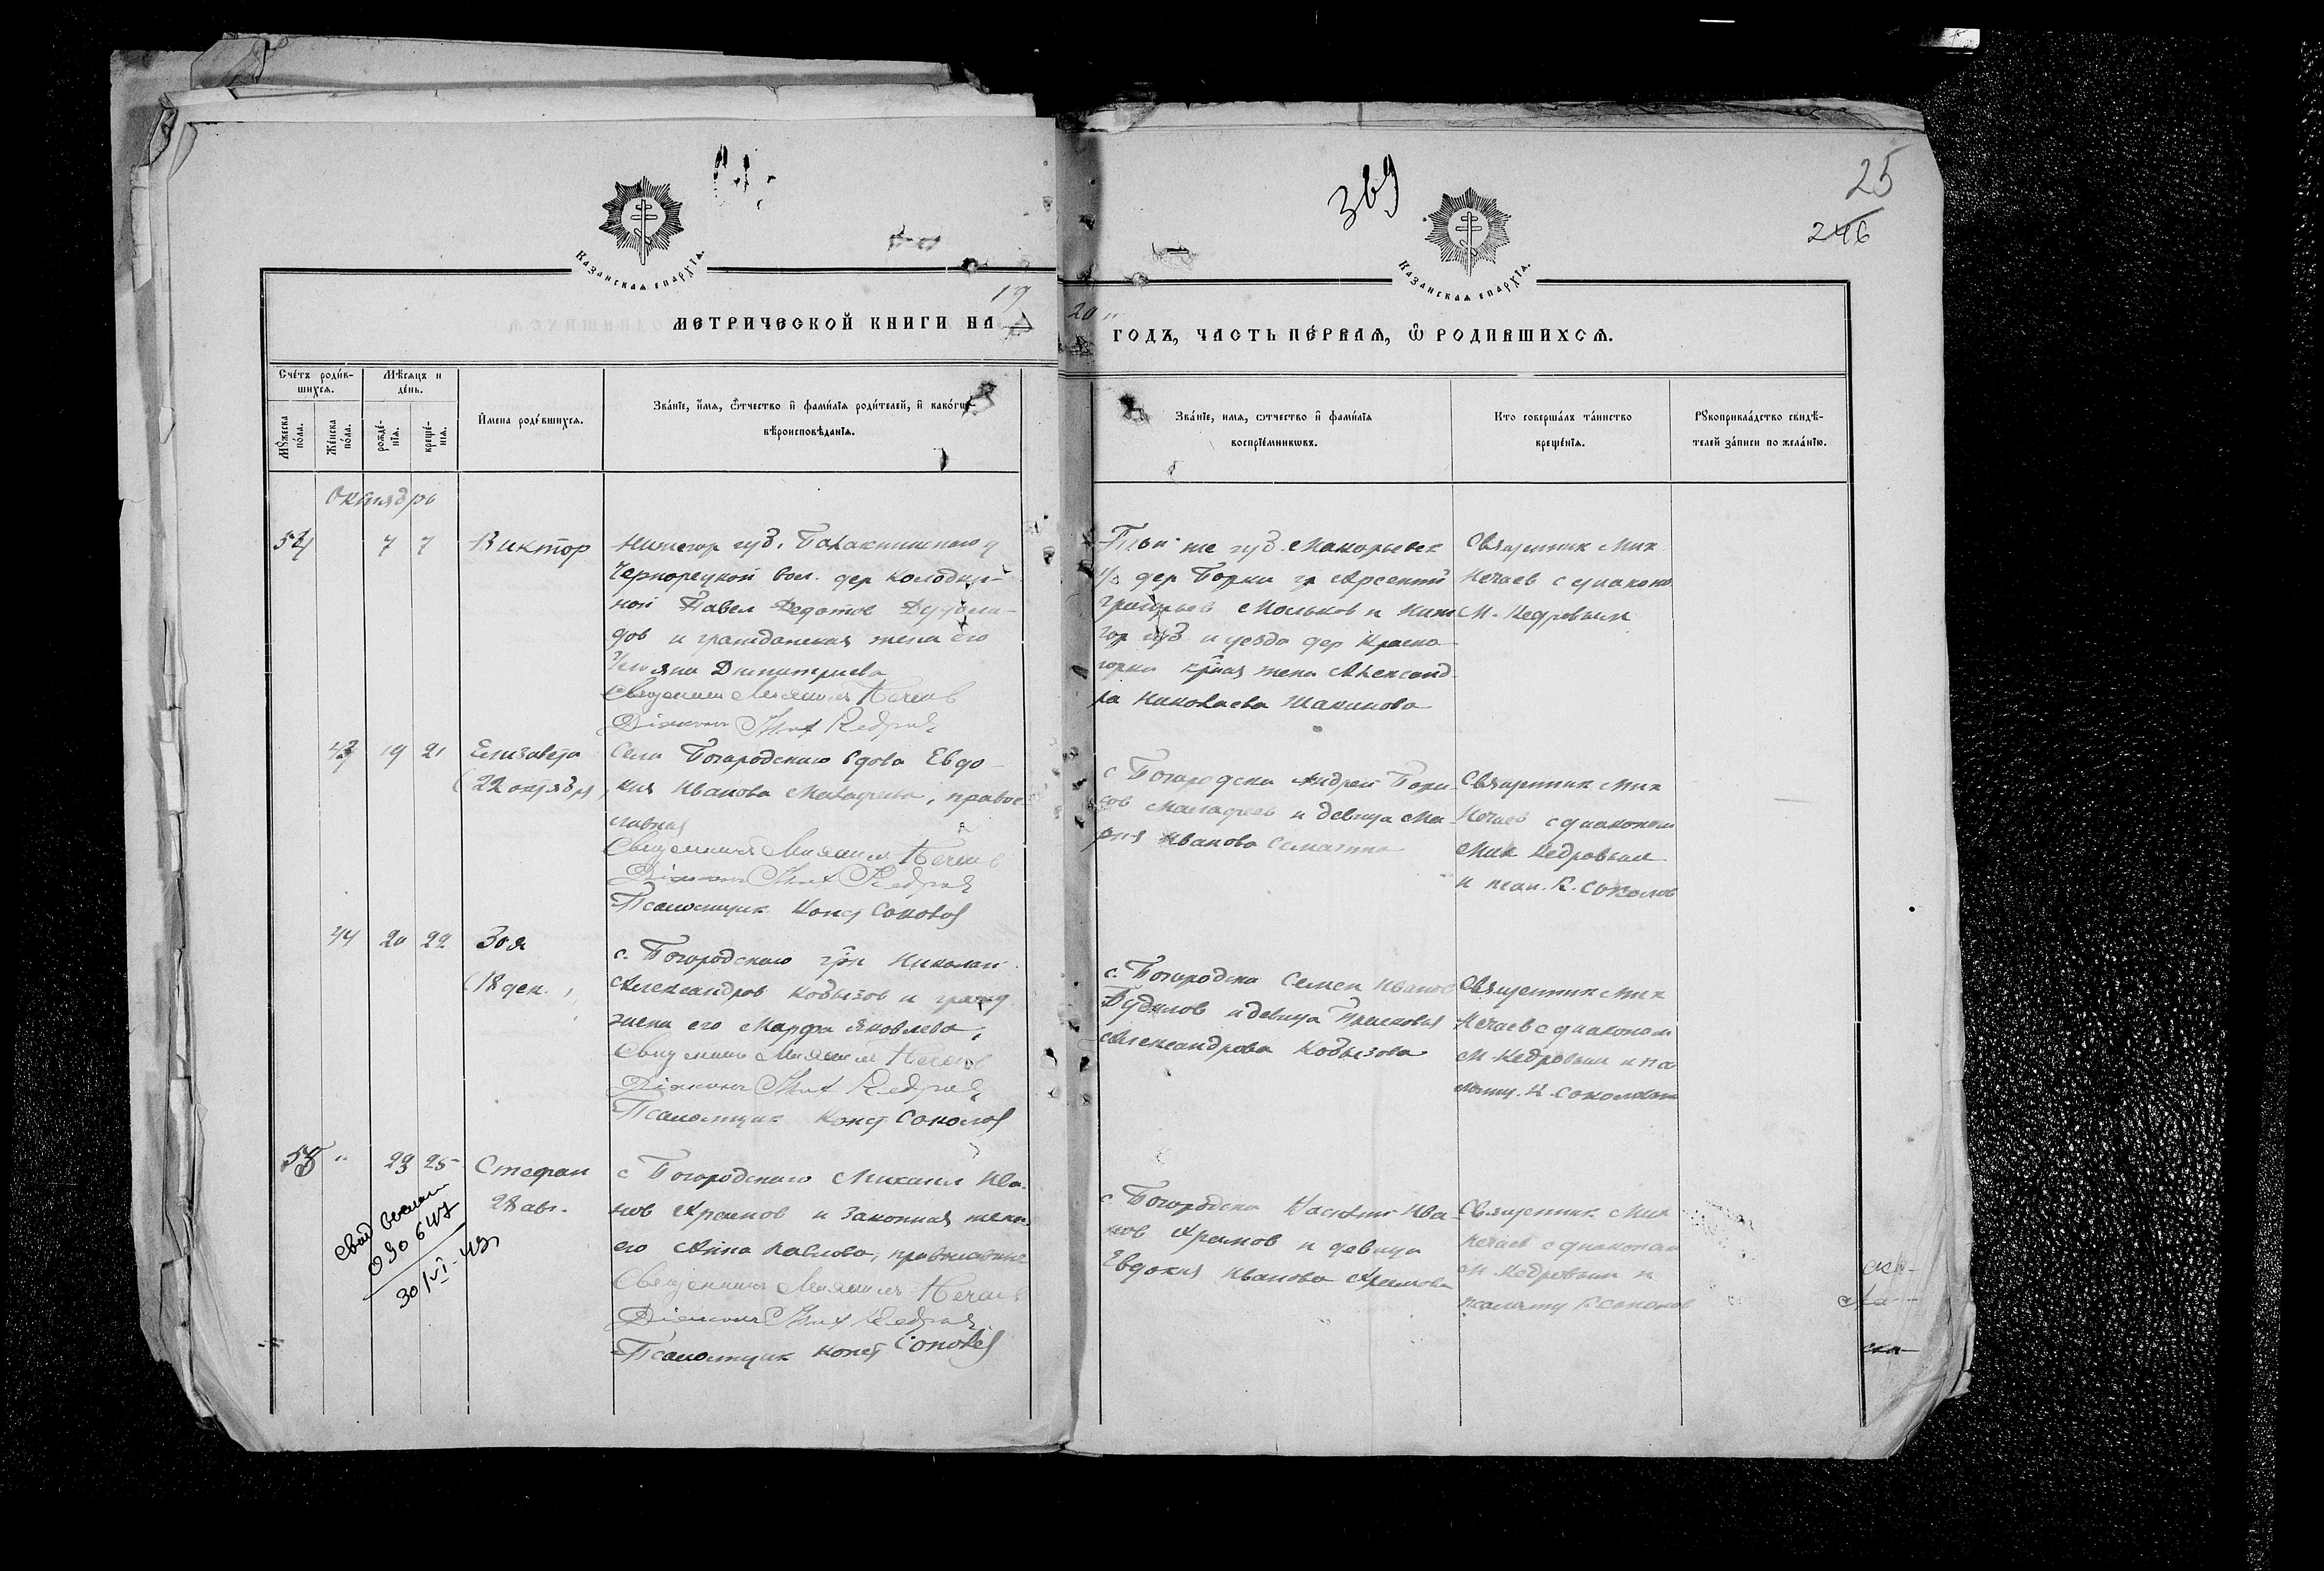 369
25
246
Казанская епархїѧ.
Казанская епархїѧ.
МЕТРИЧЕСКОЙ КНИГИ НА 19
20 ГОДЪ, ЧАСТЬ ПЕ́РВАѦ, Ѡ҆ РОДИВШИХСѦ.
Сче́тъ роди́в-
шихсѧ.
Мѣ́сѧцъ и
де́нь.
Мꙋ́жеска
по́ла.
Же́нска
по́ла.
рожде́-
нїѧ.
креще́-
нїѧ.
И҆мена роди́вшихсѧ.
Зва́нїе, и҆́мѧ, ѻ҆́тчество и҆ фами́лїѧ роди́телей, и҆ како́гѡ
вѣроисповѣ́данїѧ.
Зва́нїе, имѧ, ѻтчество и҆ фами́лїѧ
воспрїе́мникѡвъ.
Кто соверша́лъ та́инство
креще́нїѧ.
Рꙋкоприкла́дство свидѣ́-
телей за́писи по жела́нїю.
Октябрь
54 7 7 Виктор
Нижегор губ. Балахнинского у
Чернорецкой вол. дер Колодки-
ной Павел Федотов
и гражданская жена его
Димитриева
Священник Михаил Нечаев
Дiаконъ Мих Кедров
Той же губ. Макарьевск
у дер Борки гр Арсентий
Григорьев Мольков и Ниже
гор губ и уезда дер Красно
горки жена Александ-
ра Николаева
Священник Мих
Нечаев с диаконом
М. Кедровым
43 19 21 Елизавета
(22 октября)
Села Богородского вдова Евдо-
кия Иванова Малафеева, правос-
лавная
Священник Михаил Нечаев
Дiаконъ Мих Кедров
Псаломщик Конст Соколов
с Богородска Андрей Бори-
сов Малафеев и девица Ма-
рия Иванова
Священник Мих
Нечаев с диаконом
Мих Кедровым
и псал. К. Соколов
44 20 22 Зоя
(18 дек.)
с. Богородского гр-н Николай
Александров Кобызов и гражд
жена его Марфа Яковлева
Священник Михаил Нечаев
Дiаконъ Мих Кедров
Псаломщик Конст Соколов
с. Богородска Семен Иванов
Будилов и девица Прасковья
Александрова Кобызова
Священник Мих
Нечаев с диаконом
М. Кедровым и пса
ломщ. К. Соколовым
55 " 23 25 Стефан
28 авг.
с Богородского Михаил Ива-
нов Храмов и законная жена
его Анна Павлова, православные
Священник Михаил Нечаев
Дiаконъ Мих Кедров
Псаломщик Конст Соколов
с Богородска Василий Ива-
нов Храмов и девица
Евдокия Иванова Храмова
Священник Мих
Нечаев с диаконом
М Кедровым и
псаломщ К Соколов
30/VI-43
ска-